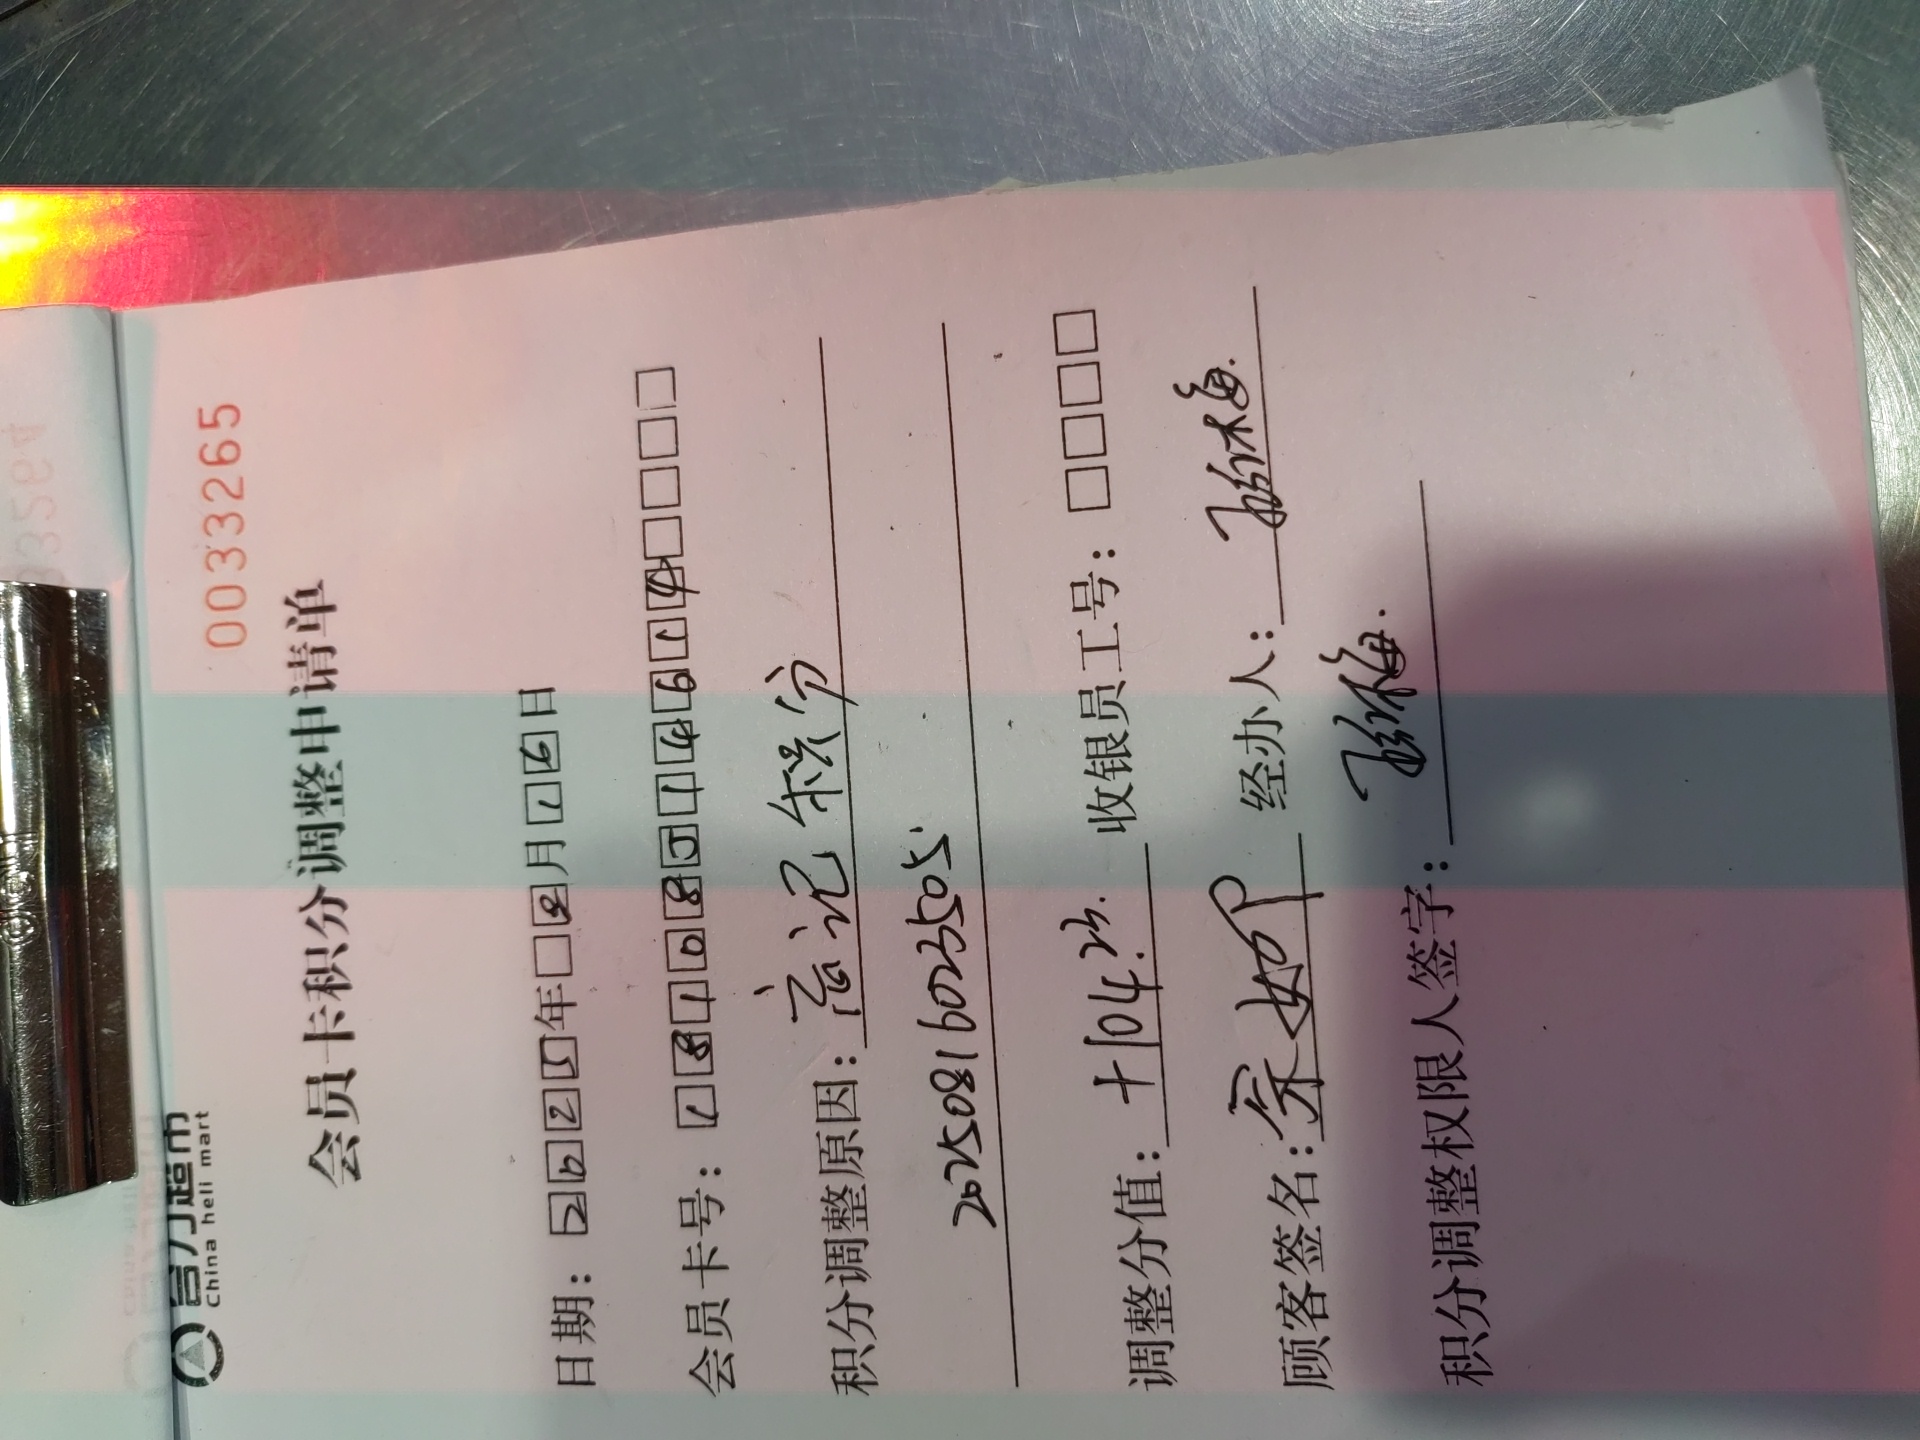 合力超市
China heli mart
0033265
会员卡积分调整申请单
日期：2025年8月16日
会员卡号：18108514614
积分调整原因：忘记积分
2025081602505
调整分值：+104.23. 收银员工号：
顾客签名： 经办人：
积分调整权限人签字：